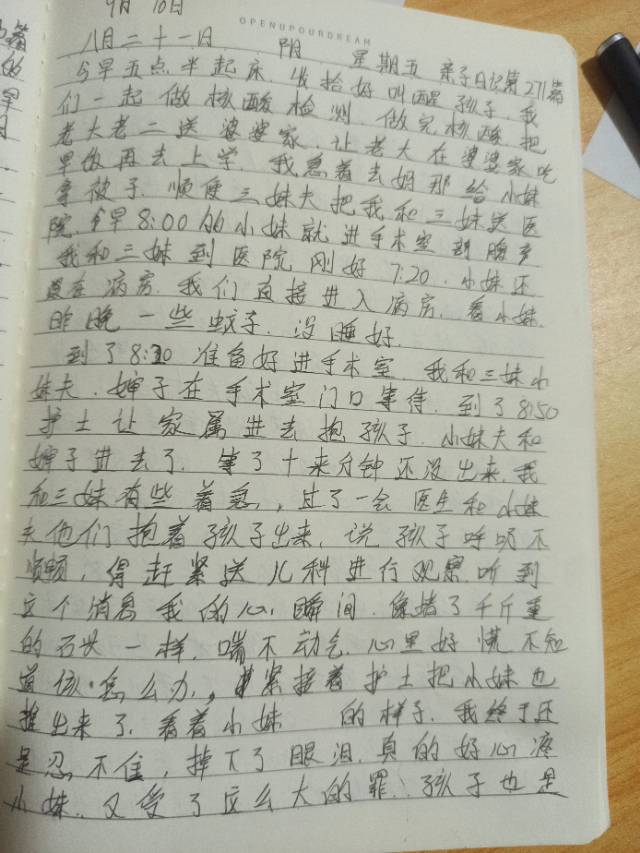 9月10日
OPENUPYOURDREAM
八月二十一日 阴 星期五 亲子日记第271篇
今早五点半起床,收拾好叫醒孩子,我
们一起做核酸检测,做完核酸,把
老大老二送婆婆家,让老大在婆婆家吃
早饭再去上学,我急着去妈那给小妹
拿被子,顺便三妹夫把我和三妹送医
院,今早8:00的小妹就进手术室剖腹产
我和三妹到医院刚好7:20,小妹还
在病房,我们直接进入病房,看小妹
昨晚一些蚊子,没睡好。
到了8:30准备好进手术室,我和三妹小
妹夫,婶子在手术室门口等待,到了8:50
护士让家属进去抱孩子,小妹夫和
婶子进去了,等了十来分钟还没出来,我
和三妹有些着急,,过了一会医生和小妹
夫他们抱着孩子出来,说孩子呼吸不
顺畅,得赶紧送儿科进行观察,听到
这个消息我的心瞬间,像堵了千斤重
的石块一样,喘不动气,心里好慌不知
道该怎么办,,紧接着护士把小妹也
推出来了,看着小妹 的样子,我终于还
是忍不住,掉下了眼泪,真的好心疼
小妹,又受了这么大的罪,孩子也是